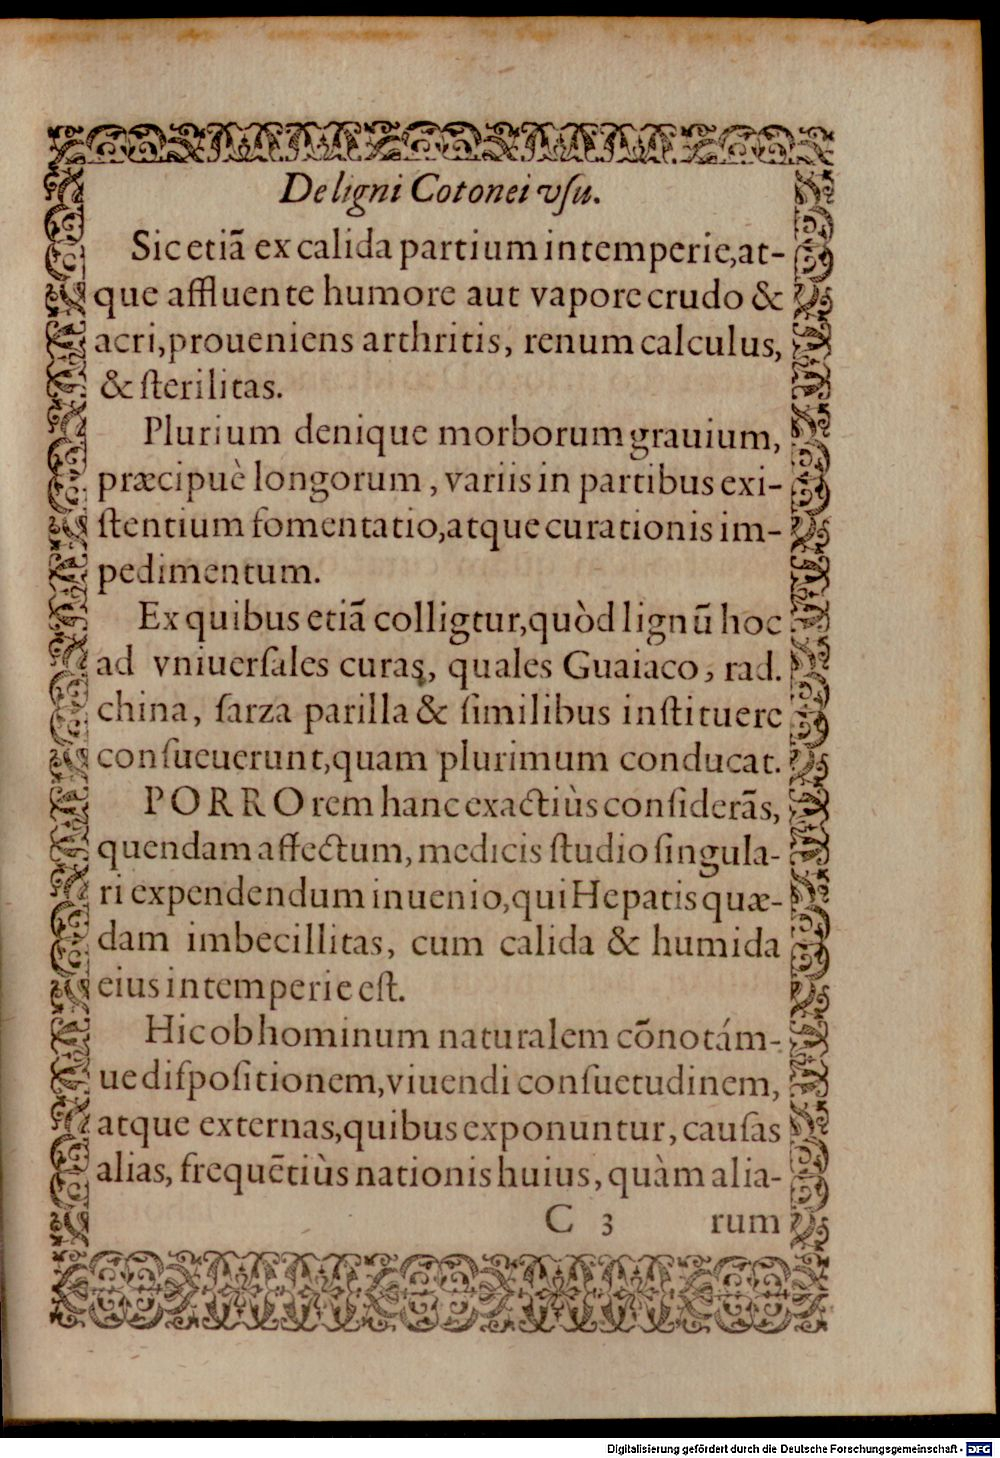 De ligni Cotonei vſu.
Sic etiã ex calida partium intemperie, at-
que affluente humore aut vapore crudo &
acri, proueniens arthritis, renum calculus,
& ſterilitas.
Plurium denique morborum grauium,
præcipuè longorum, variis in partibus exi-
ſtentium fomentatio, atque curationis im-
pedimentum.
Ex quibus etiã colligtur, quòd lignũ hoc
ad vniuerſales curas, quales Guaiaco, rad.
china, ſarza parilla & ſimilibus inſtituere
conſueuerunt, quam plurimum conducat.
PORRO rem hanc exactiùs conſiderãs,
quendam affectum, medicis ſtudio ſingula-
ri expendendum inuenio, qui Hepatis quæ-
dam imbecillitas, cum calida & humida
eius intemperie eſt.
Hic ob hominum naturalem cõnotám-
ue diſpoſitionem, viuendi conſuetudinem,
atque externas, quibus exponuntur, cauſas
alias, frequẽtiùs nationis huius, quàm alia-
C 3 rum
Digitalisierung gefördert durch die Deutsche Forschungsgemeinschaft - DFG